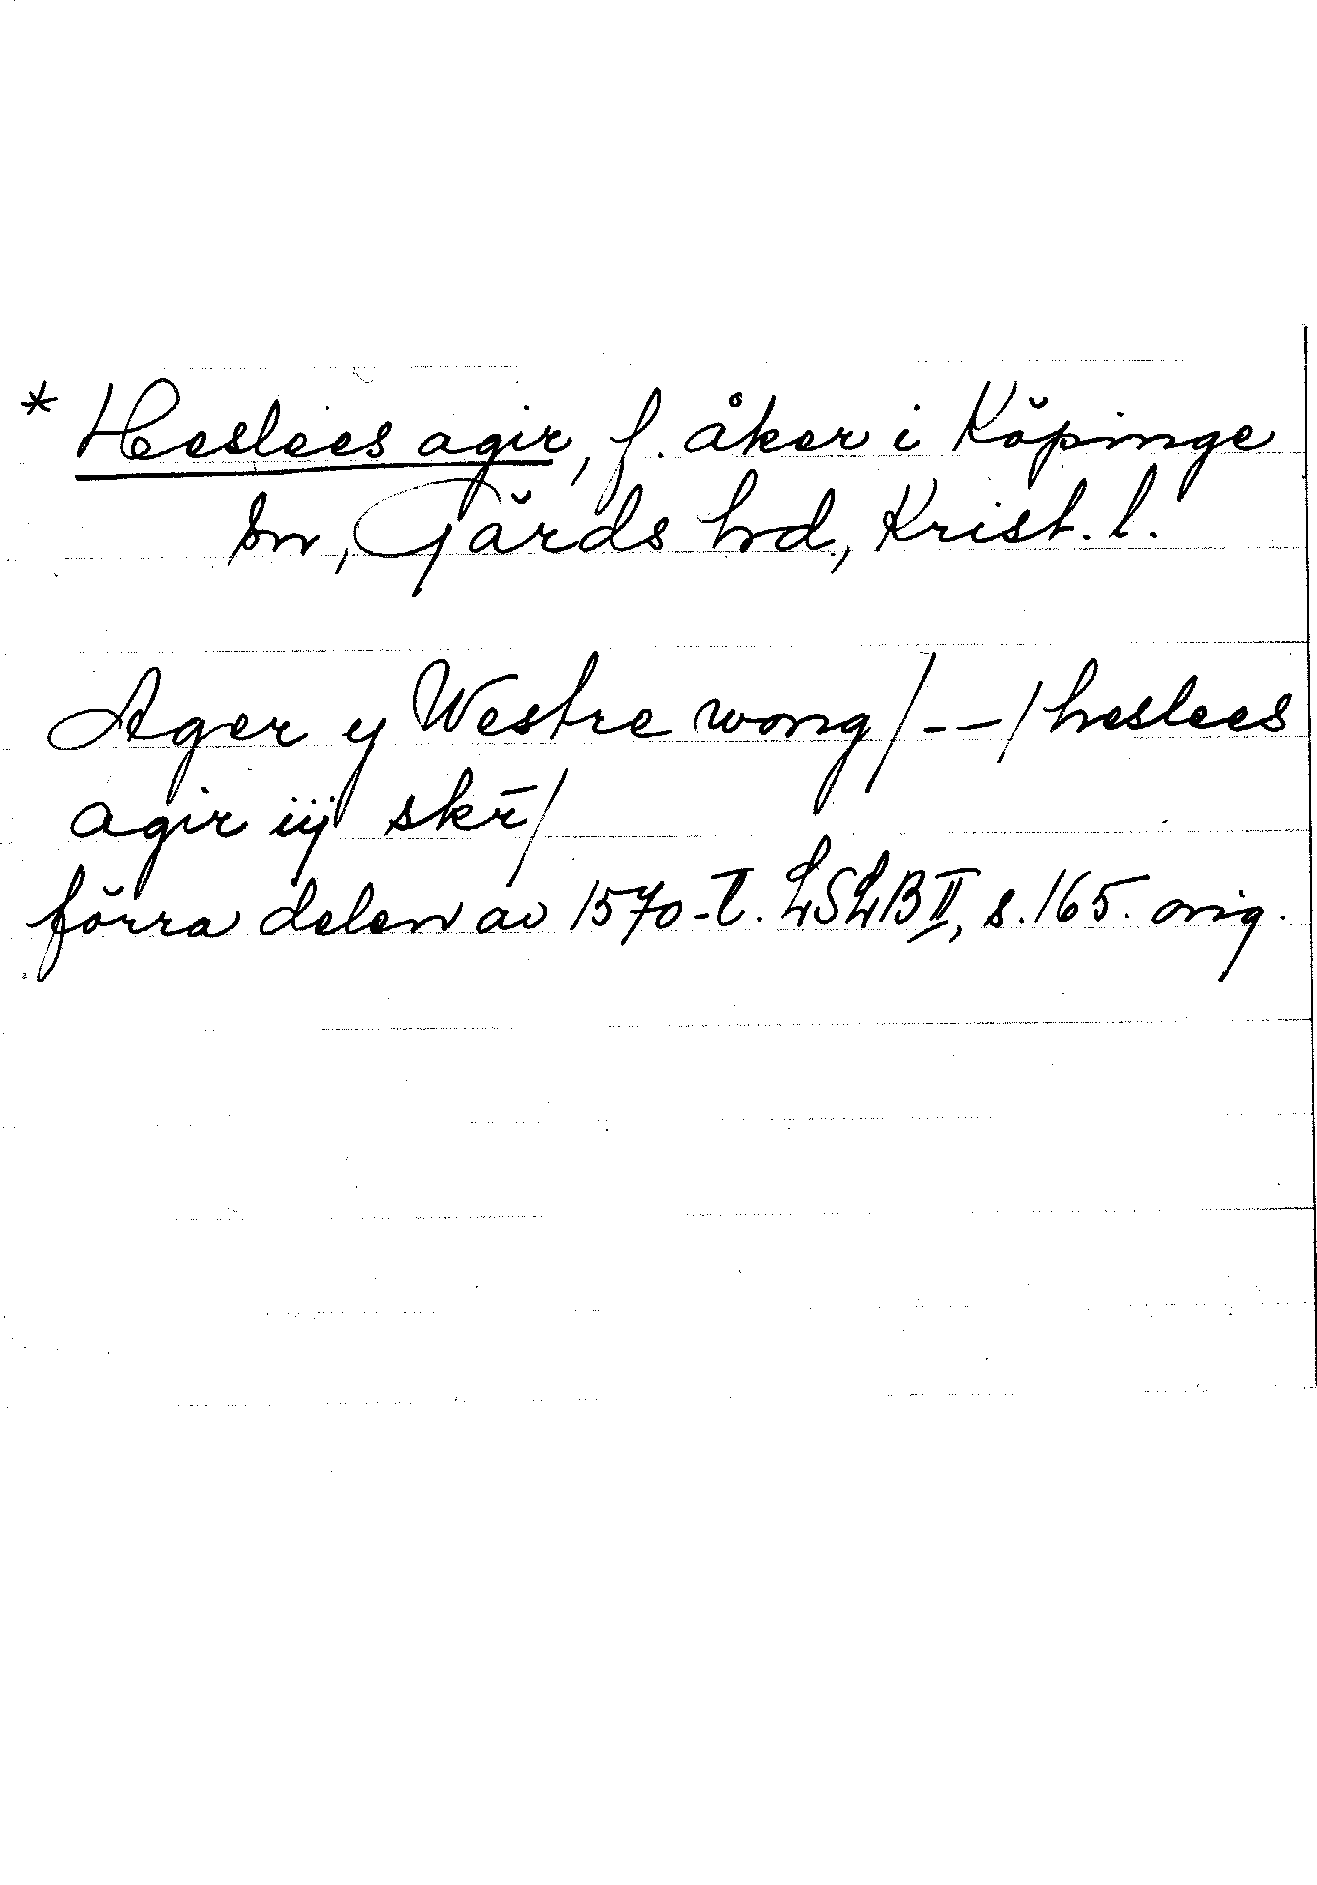 * Heslees agir, f. åker i Köpinge
sn, Gärds hrd, Krist. l.
Ager y Westre wong/--/heslees
agir iij skr̄/
förra delen av 1570-t. LSLB II, s. 165. orig.